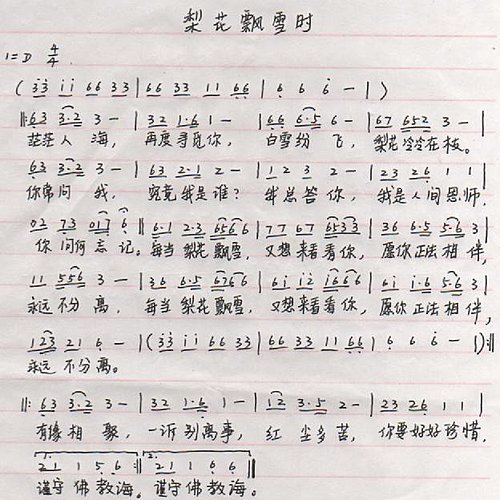 梨花飘雪时
1=D 4/4
( 33 11 66 33 | 66 33 11 66 | 6 6 6 - | )
‖: 63 3·2 3 - | 32 1·6 1 - | 66 6·5 6 - | 67 652 3 - |
茫茫人海, 再度寻觅你, 白雪纷飞, 梨花冷冷在枝。
63 3·2 3 - | 63 2·1 2 - | 1 2 3 2 - | 23 26 1 1 |
你常问我, 究竟我是谁? 我总答你, 我是人间恩师.
02 73 017 6 ‖ 6·1 2·3 6566 | 77 67 6533 | 36 6·5 5·6 3 |
你问何忘记。每当梨花飘雪, 又想来看看你, 愿你正法相伴,
11 556 3 - | 36 6·5 6766 | 61 12 1666 | 61 1·6 5·6 3 |
永远不分离, 每当梨花飘雪, 又想来看看你, 愿你正法相伴,
123 21 6 - | (33 11 66 33 | 66 33 11 66 | 6 6 6 - | ) :‖
永远不分离。
‖: 63 3·2 3 - | 32 1·6 1 - | 12 3·5 2 - | 23 26 1 1 |
有缘相聚, 一诉别离事, 红尘多苦, 你要好好珍惜.
1. 21 1 5 6 :‖ 2. 21 1 6 6 ‖
谨守佛教诲。谨守佛教诲。